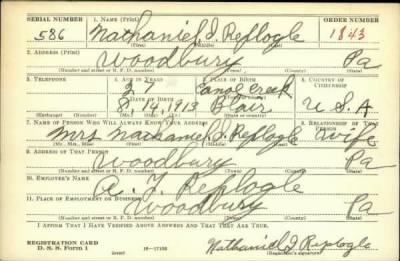 SERIAL NUMBER 1. NAME (Print) ORDER NUMBER
586 Nathaniel I. Replogle 1843
(First) (Middle) (Last)
2. ADDRESS (Print)
Woodbury Pa
(Number and street or R. F. D. number) (Town) (County) (State)
3. TELEPHONE 4. AGE IN YEARS 5. PLACE OF BIRTH 6. COUNTRY OF CITIZENSHIP
27 Canoe Creek
DATE OF BIRTH (Town or county)
8 14 1913 Blair U.S.A
(Exchange) (Number) (Mo.) (Day) (Yr.) (State or country)
7. NAME OF PERSON WHO WILL ALWAYS KNOW YOUR ADDRESS 8. RELATIONSHIP OF THAT PERSON
Mrs Nathaniel I. Replogle Wife
(Mr., Mrs., Miss) (First) (Middle) (Last)
9. ADDRESS OF THAT PERSON
Woodbury Pa
(Number and street or R. F. D. number) (Town) (County) (State)
10. EMPLOYER'S NAME
Replogle
11. PLACE OF EMPLOYMENT OR BUSINESS
Woodbury Pa
(Number and street or R. F. D. number) (Town) (County) (State)
I AFFIRM THAT I HAVE VERIFIED ABOVE ANSWERS AND THAT THEY ARE TRUE.
REGISTRATION CARD
D. S. S. Form 1 (over) 16—17105 Nathaniel I Replogle
(Registrant's signature)